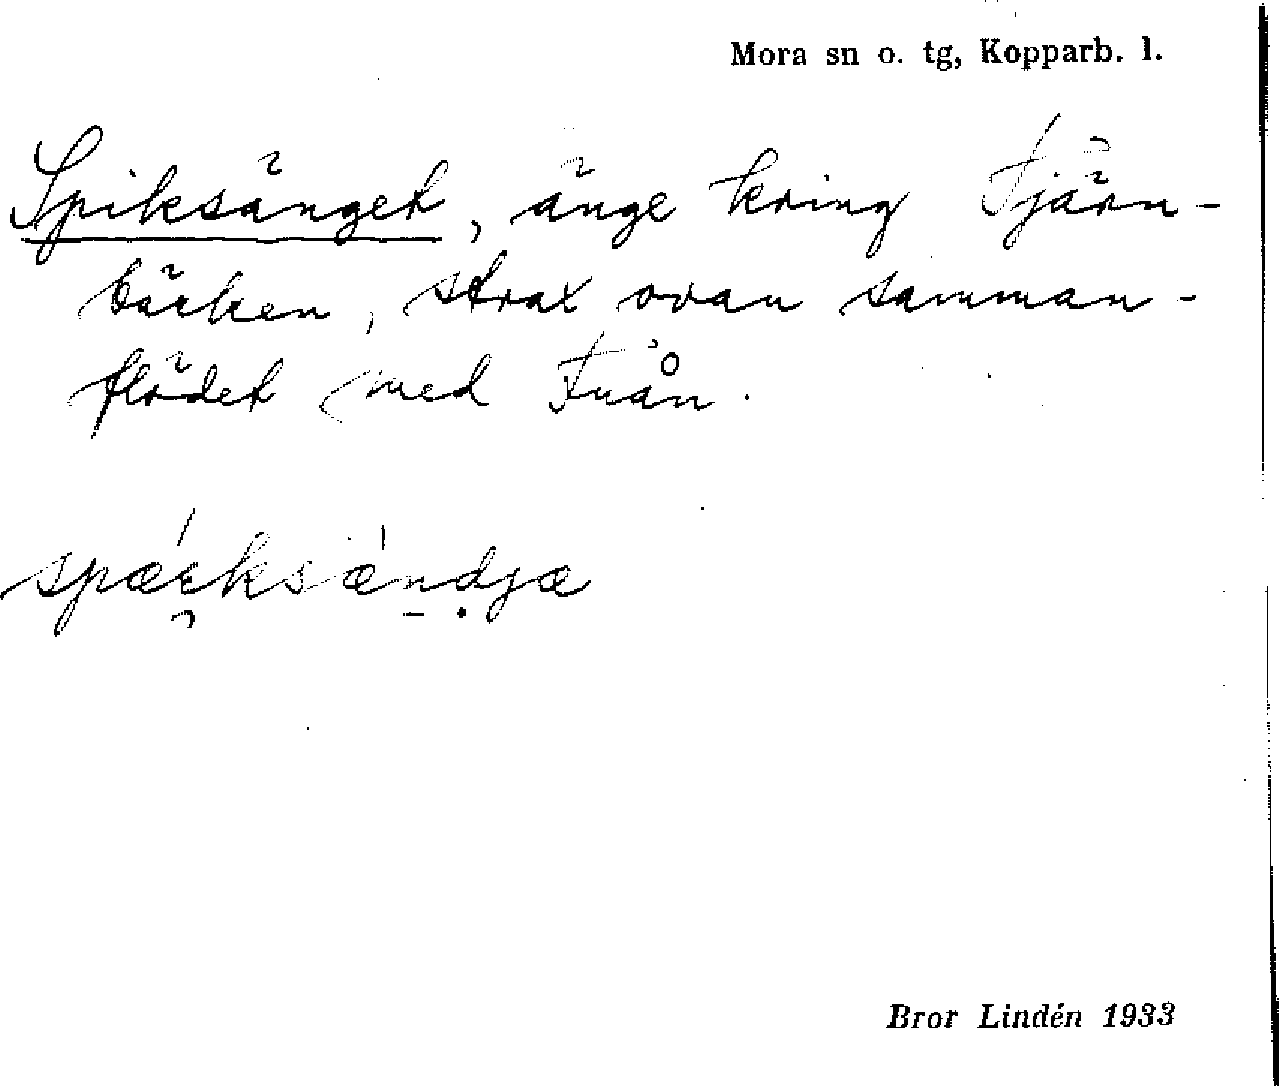 Mora sn o. tg, Kopparb. l.
Spiksänget, änge kring Tjärn-
bäcken, strax ovan samman-
flödet med Fuån.
spæ̀ɛksæ̀ndjæ
Bror Lindén 1933